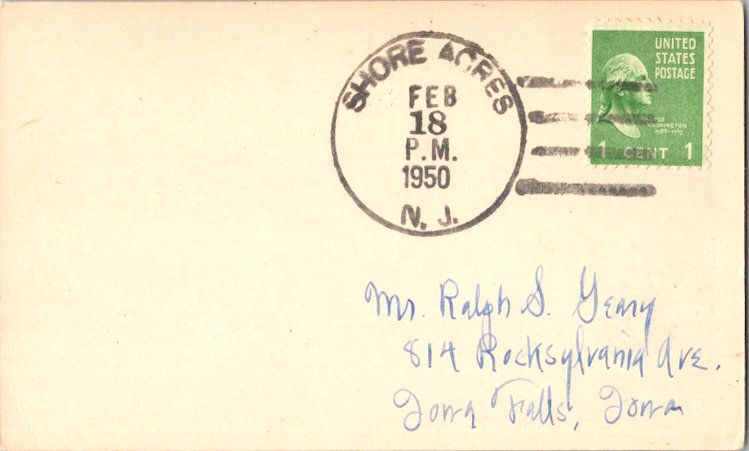 SHORE ACRES
FEB
18
P.M.
1950
N. J.
UNITED
STATES
POSTAGE
WASHINGTON
1 CENT 1
Mr. Ralph S. Geary
814 Rocksylvania Ave.
Iowa Falls, Iowa